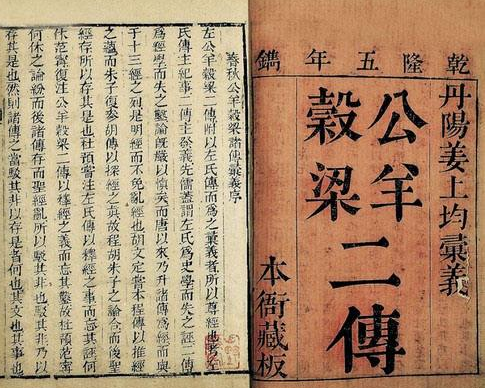 乾隆五年鐫
丹陽姜上均彙義
公羊
穀梁
二傳
本衙藏板
春秋公羊穀梁諸傳彙義序
左公羊穀梁二傳附以左氏傳而為之彙義者所以尊經也左
氏傳主紀事二傳主發義先儒蓋謂左氏為史學而失之誣二傳
為經學而失之鑿論既嚴以慎矣而唐以來乃升諸傳為經而與
于十三經之列是明經而不免亂經也胡文定嘗本程傳以推經
之蘊而朱子復參胡傳以探經之真故程胡朱子之論合而後聖
經存所以存其是也杜預嘗注左氏傳以釋經之事而忘其誣何
休范甯復注公羊穀梁二傳以釋經之義而忘其鑿故杜預范甯
何休之論紛而後諸傳存而聖經亂所以駁其非也駁其非乃以
存其是也然則諸傳之當駁其非以存是者何也其文也其事也